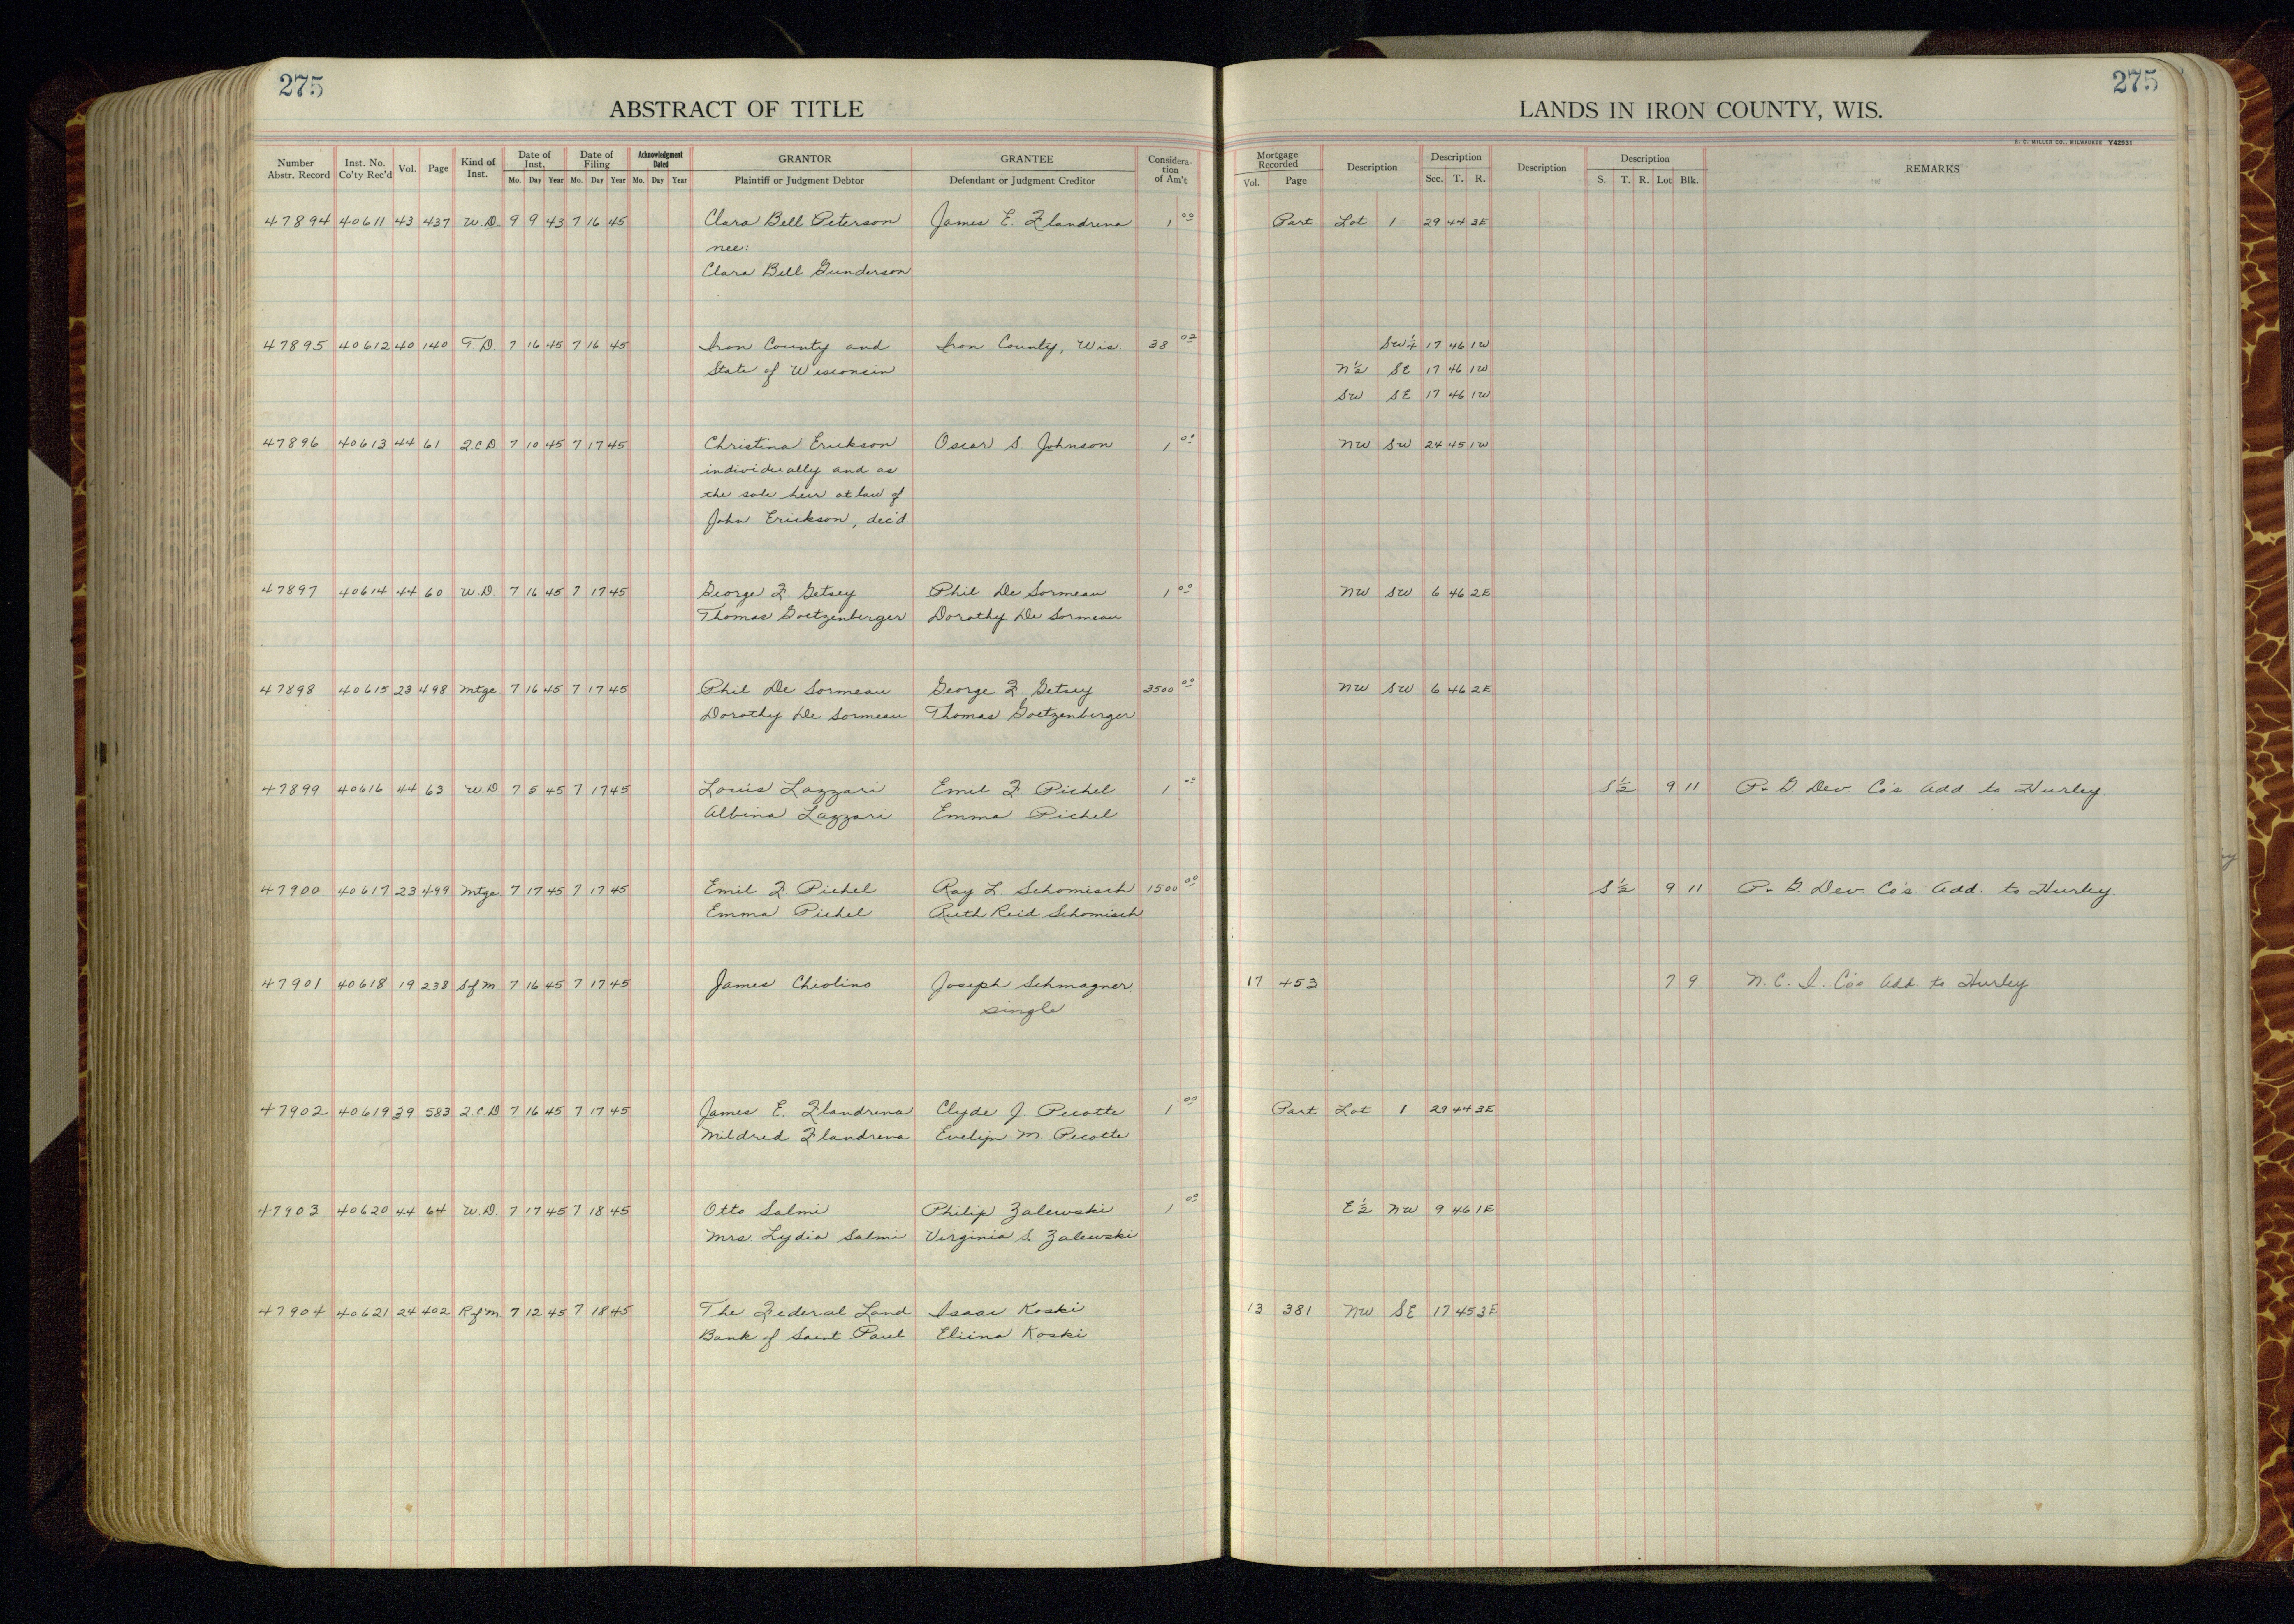 275
275
ABSTRACT OF TITLE
LANDS IN IRON COUNTY, WIS.
H. C. MILLER CO., MILWAUKEE Y42931
Number Abstr. Record Inst. No. Co'ty Rec'd Vol. Page Kind of Inst. Date of Inst. Mo. Day Year Date of Filing Mo. Day Year Acknowledgment Dated Mo. Day Year GRANTOR Plaintiff or Judgment Debtor GRANTEE Defendant or Judgment Creditor Considera- tion of Am't Mortgage Recorded Vol. Page Description Description Sec. T. R. Description Description S. T. R. Lot Blk. REMARKS
47894 40611 43 437 W.D. 9 9 43 7 16 45 Clara Bell Peterson James E. Flandrena 1 00 Part Lot 1 29 44 3E
nee:
Clara Bell Gunderson
47895 40612 40 140 T.D. 7 16 45 7 16 45 Iron County and Iron County, Wis 38 03 SW¼ 17 46 1W
State of Wisconsin N½ SE 17 46 1W
SW SE 17 46 1W
47896 40613 44 61 Q.C.D. 7 10 45 7 17 45 Christina Erickson Oscar S. Johnson 1 00 NW SW 24 45 1W
individually and as
the sole heir at law of
John Erickson, dec'd
47897 40614 44 60 W.D. 7 16 45 7 17 45 George F. Getsey Phil De Sormeau 1 00 NW SW 6 46 2E
Thomas Goetzenberger Dorothy De Sormeau
47898 40615 23 498 Mtge 7 16 45 7 17 45 Phil De Sormeau George F. Getsey 3500 00 NW SW 6 46 2E
Dorothy De Sormeau Thomas Goetzenberger
47899 40616 44 63 W.D 7 5 45 7 17 45 Louis Lazzari Emil F Pichel 1 00 S½ 9 11 P. & G Dev Co's. Add. to Hurley.
Albina Lazzari Emma Pichel
47900 40617 23 499 Mtge 7 17 45 7 17 45 Emil F Pichel Ray L. Schomisch 1500 00 S½ 9 11 P. & G. Dev Co's Add. to Hurley.
Emma Pichel Ruth Reid Schomisch
47901 40618 19 238 S of M 7 16 45 7 17 45 James Chiolino Joseph Schmagner, 17 453 7 9 N. C. I. Co's Add. to Hurley
single
47902 40619 39 583 Q.C.D 7 16 45 7 17 45 James E. Flandrena Clyde J. Pecotte 1 00 Part Lot 1 29 44 3E
Mildred Flandrena Evelyn M. Pecotte
47903 40620 44 64 W.D 7 17 45 7 18 45 Otto Salmi Philip Zalewski 1 00 E½ NW 9 46 1E
Mrs. Lydia Salmi Virginia S. Zalewski
47904 40621 24 402 R of M. 7 12 45 7 18 45 The Federal Land Isaac Koski 13 381 NW SE 17 45 3E
Bank of Saint Paul Eliina Koski